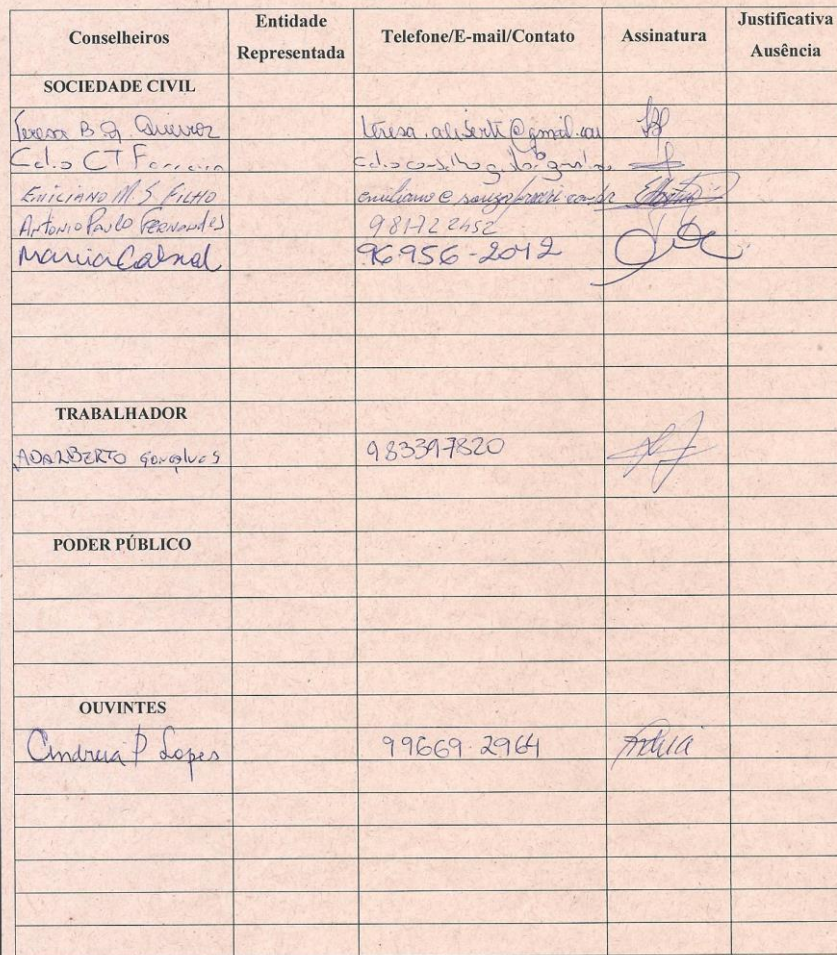 Conselheiros Entidade Representada Telefone/E-mail/Contato Assinatura Justificativa Ausência
SOCIEDADE CIVIL
Teresa B Queiroz
CT Ferreira
EMILIANO M. S. FILHO
ANTONIO PAULO FERNANDES 981722452
Marcia Cabral 96956-2042
TRABALHADOR
ADALBERTO Gonçalves 983397820
PODER PÚBLICO
OUVINTES
Andreia P Lopes 99669-2964